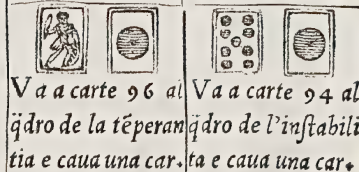 Va a carte 96 al
q̈dro de la tẽperan
tia e caua una car.
Va a carte 94 al
q̈dro de l'inſtabili
ta e caua una car.